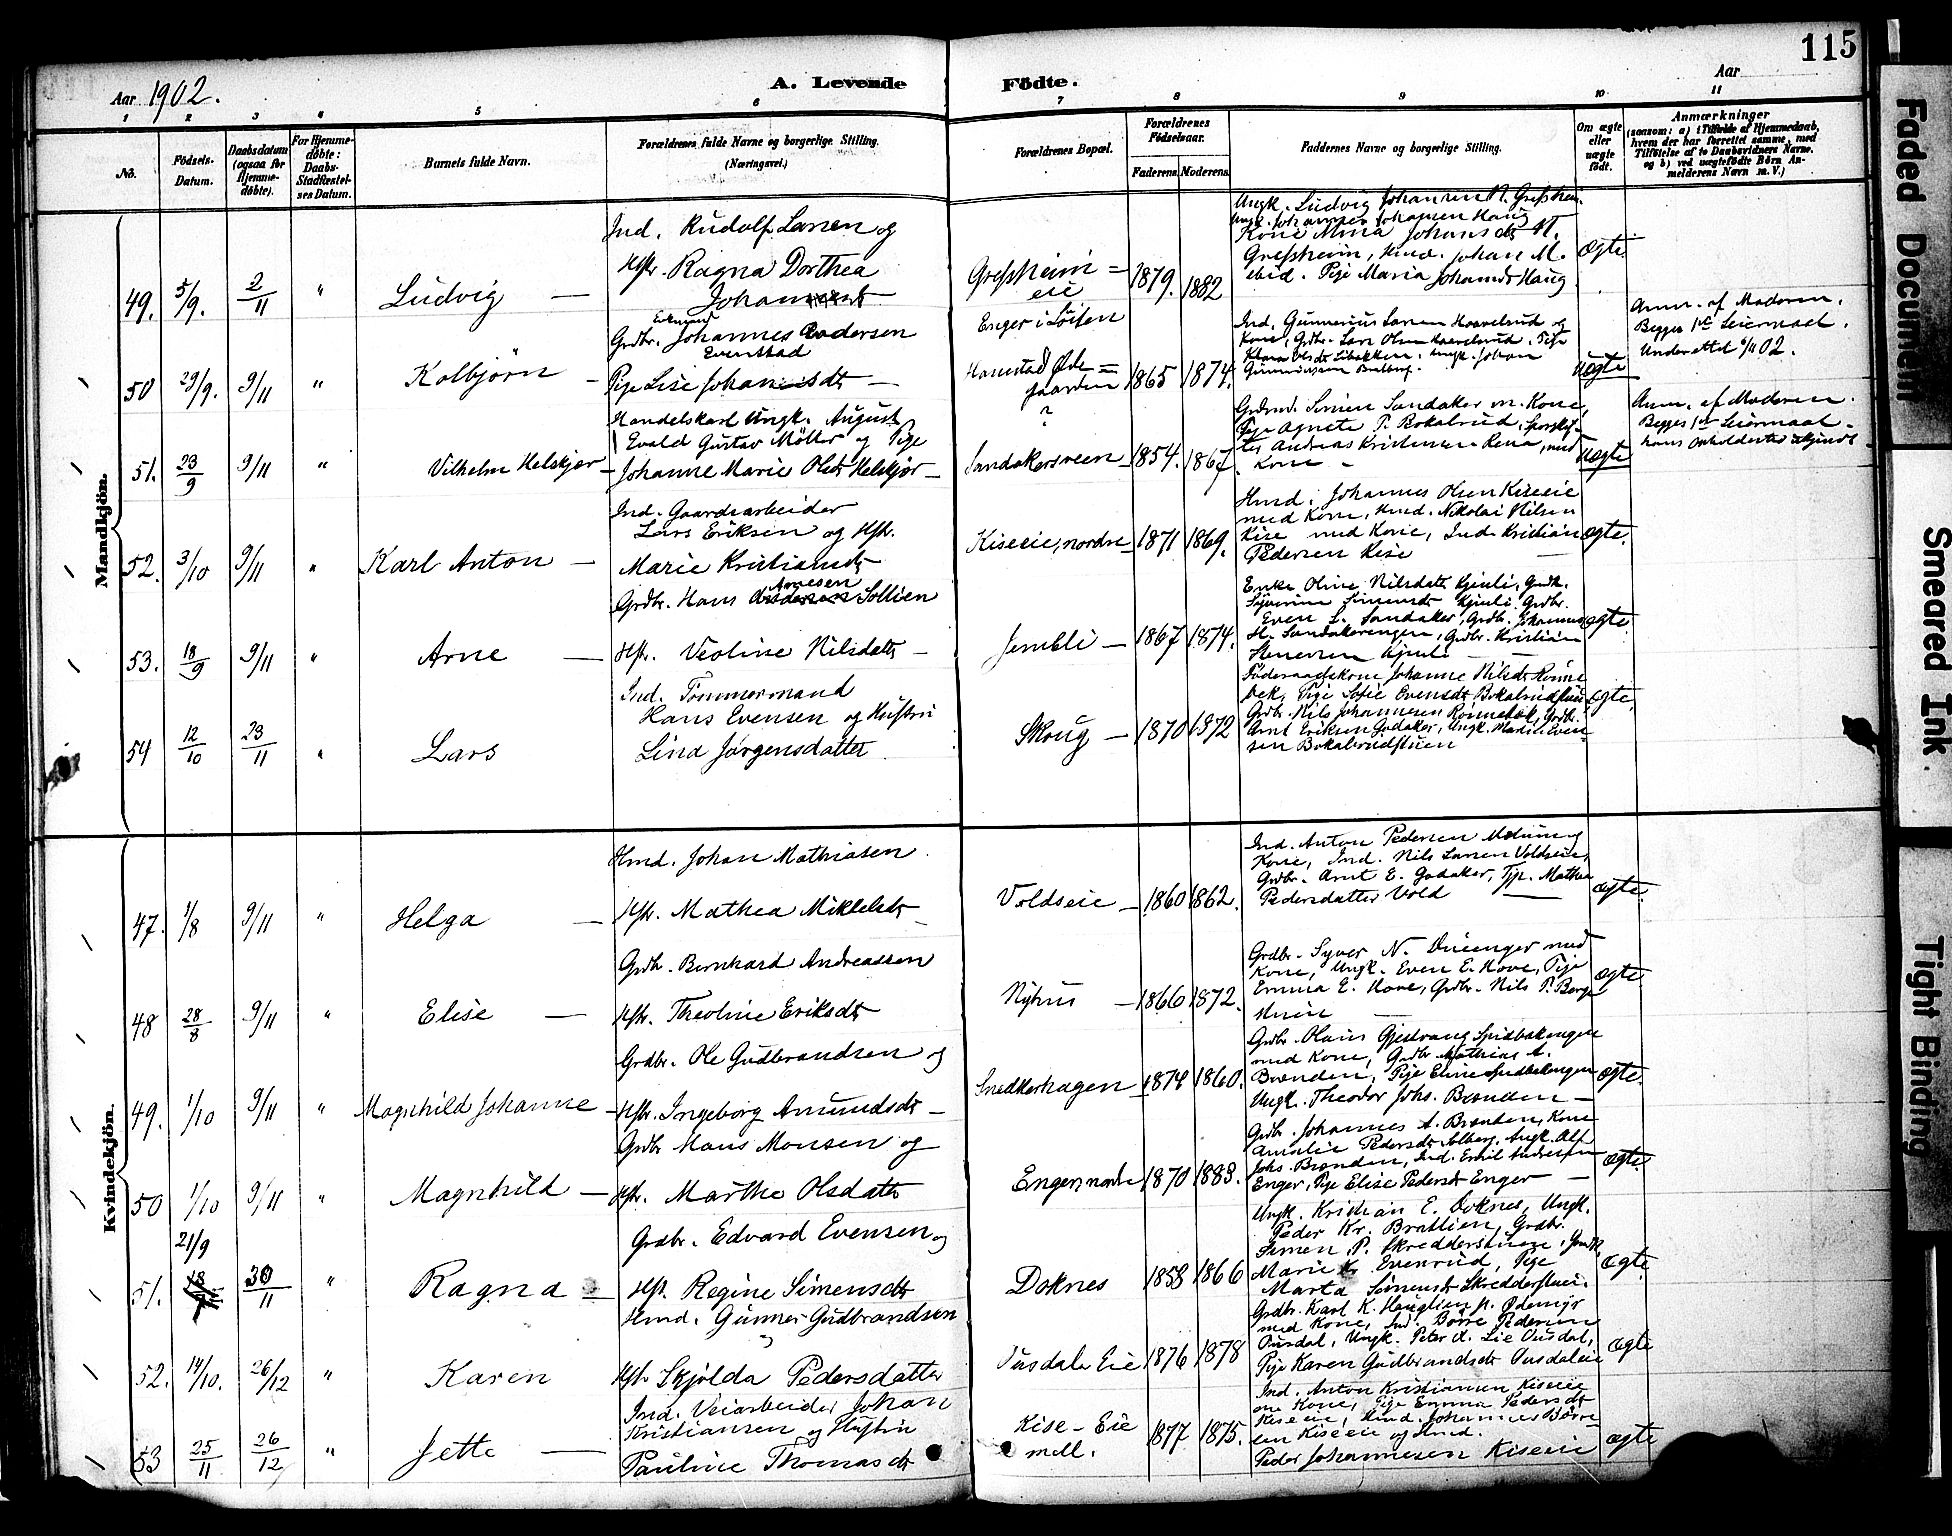 115
Aar 1902.
A. Levende Födte.
Aar
1 2 3 4 5 6 7 8 9 10 11
No.
Födsels-Datum.
Daabsdatum (ogsaa for Hjemmedöbte).
For Hjemmedöbte: Daabs-Stadfæstelses Datum.
Barnets fulde Navn.
Forældrenes fulde Navne og borgerlige Stilling. (Næringsvei.)
Forældrenes Bopæl.
Forældrenes Födselsaar.
Faderens. Moderens.
Faddernes Navne og borgerlige Stilling.
Om ægte eller uægte födt.
Anmærkninger
(saasom: a) i Tilfælde af Hjemmedaab, hvem der har forrettet samme, med Tilföielse af to Daabsvidners Navne. og b) ved uægtefödte Börn Anmelderens Navn m. V.)
Mandkjön.
49. 5/9. 2/11 " Ludvig —
Ind. Rudolf Larsen og
Hstr. Ragna Dorthea
Grefsheim = eie 1879. 1882
Ungk. Ludvig Johansen N. Grefsheim.
Ungk. Johannes Johansen Haug
Kone Mina Johansdtr M.
Grefsheim, Hmd. Johan M.
ibid. Pige Maria Johansdtr Haug
ægte
50 29/9. 9/11 " Kolbjörn —
Grdbr. Johannes Pedersen
Evenstad
Pige Lise Johansdtr —
Enger i Löiten
Hamstad Öde = gaarden
1865 1874.
Ind. Gunnerius Larsen Haavelsrud og
Kone, Grdbr. Lars Olsen Haavelsrud. Pige
uægte
Anm. af Moderen.
Begges 1ste Leiermaal.
51. 23/9 9/11 " Vilhelm Helskjør
Handelskarl Ungk. August
Evald Gustav Möller og Pige
Johanne Marie Olsdtr Helskjør —
?
Sandakersveen 1854. 1867.
Grdmd. Simen Sandaker m. Kone,
Pige Agnete P. Bokalrud,
Andreas Kristiansen Rena, med
Kone —
uægte
Anm. af Moderen.
Begges 1ste Leiermaal.
hans Opholdssted ukjendt
52. 3/10 9/11 " Karl Anton —
Ind. Gaardsarbeider
Lars Eriksen og Hstr.
Marie Kristiansdtr
Kiseeie, nordre 1871 1869.
Hmd. Johannes Olsen Kiseeie
med Kone, Hmd. Nikolai Nilsen
Kise med Kone, Ind. Kristian
Pedersen Kise —
ægte.
53. 18/9 9/11 " Arne —
Arnesen
Grdbr. Hans Sollien
Hstr. Veoline Nilsdatter —
Jembli — 1867 1874.
Enke Oline Nilsdatter Kjenli, Grdk.
Syverine Simensdtr Kjenli. Grdbr.
Even L. Sandaker, Grdb. Johannes
H. Sandakerengen, Grdbr. Kristian
ægte
54 12/10 23/11 " Lars
Ind. Tömmermand
Hans Evensen og Hustru
Lina Jörgensdatter
Skoug — 1870 1872
Föderaadskone Johanne Nilsdtr Rönne
bek, Pige Sofie Evensdtr Bokalrudstuen
Grdbr. Nils Johannesen Rönnebek, Grdbr.
Arnt Eriksen Godaker, Ungk. Martin Even-
sen Bokalrudstuen
ægte.
Kvindekjön.
47. 1/8 9/11 " Helga —
Hmd. Johan Mathiasen
Hstr. Mathea Mikkelsdtr —
Voldseie — 1860 1862.
Ind. Anton Pedersen Moum og
Kone, Ind. Nils Larsen Voldseie,
Grdbr. Arnt E. Godaker, Tjp. Mathea
Pedersdatter Vold —
ægte.
48 28/8 9/11 " Elise —
Grdb. Bernhard Andreassen
Hstr. Theoline Eriksdtr
Nyhus — 1866 1872.
Grdbr. Syver N. Duenger med
Kone, Ungk. Even E. Hove, Pige
Emma E. Hove, Grdbr. Nils P. Berge
ægte
49. 1/10 9/11 " Magnhild Johanne —
Grdbr. Ole Gudbrandsen og
Hstr. Ingeborg Amundsdtr —
Snedkerhagen 1874 1860.
Grdbr. Olaus Gjestvang Spidbakengen
med Kone, Grdbr Mathias A.
Brænden, Pige Eline Spidbakengen
Ungk. Theodor Johs. Brænden —
ægte.
50 1/10 9/11 " Magnhild —
Grdbr Hans Monsen og
Hstr. Marthe Olsdatter
Enger, nordre 1870 1883.
Grdbr. Johannes A. Brænden, Kone
Amalie Pedersdtr Solberg, Ungk. Alf
Johs. Brænden, Ind. Emil Andersen
Enger, Pige Elise Pedersdtr Enger —
ægte
51. 21/9 30/11 " Ragna —
Grdbr. Edvard Evensen og
Hstr. Regine Simensdtr
Doknes 1858 1866
Ungk. Kristian E. Doknes, Ungk.
Peder Kr. Bratlien, Grdbr.
Simen P. Skredderstuen, Grdk.
Marie K. Evenrud, Pige
Marta Simensdtr Skredderstuen.
ægte.
52. 14/10. 26/12 " Karen
Hmd. Gunner Gudbrandsen
Hstr Skjölda Pedersdatter
Ousdals Eie 1876 1878
Grdbr. Karl K. Hauglien p. Ödemyr
med Kone, Ind. Börre Pedersen
Ousdal, Ungk. Peter A. Lie Ousdal,
Pige Karen Gudbrandsdtr Ousdaleie
ægte
53 25/11 26/12 " Jette —
Ind. Veiarbeider Johan
Kristiansen og Hustru
Pauline Thomasdtr
Kise - Eie mell. 1877 1875.
Ind. Anton Kristiansen Kiseeie
m Kone, Pige Emma Pedersdtr
Kiseeie, Hmd. Johannes Börre-
sen Kiseeie og Hmd.
Peder Johannesen Kiseeie
ægte
Faded Document
Smeared Ink.
Tight Binding